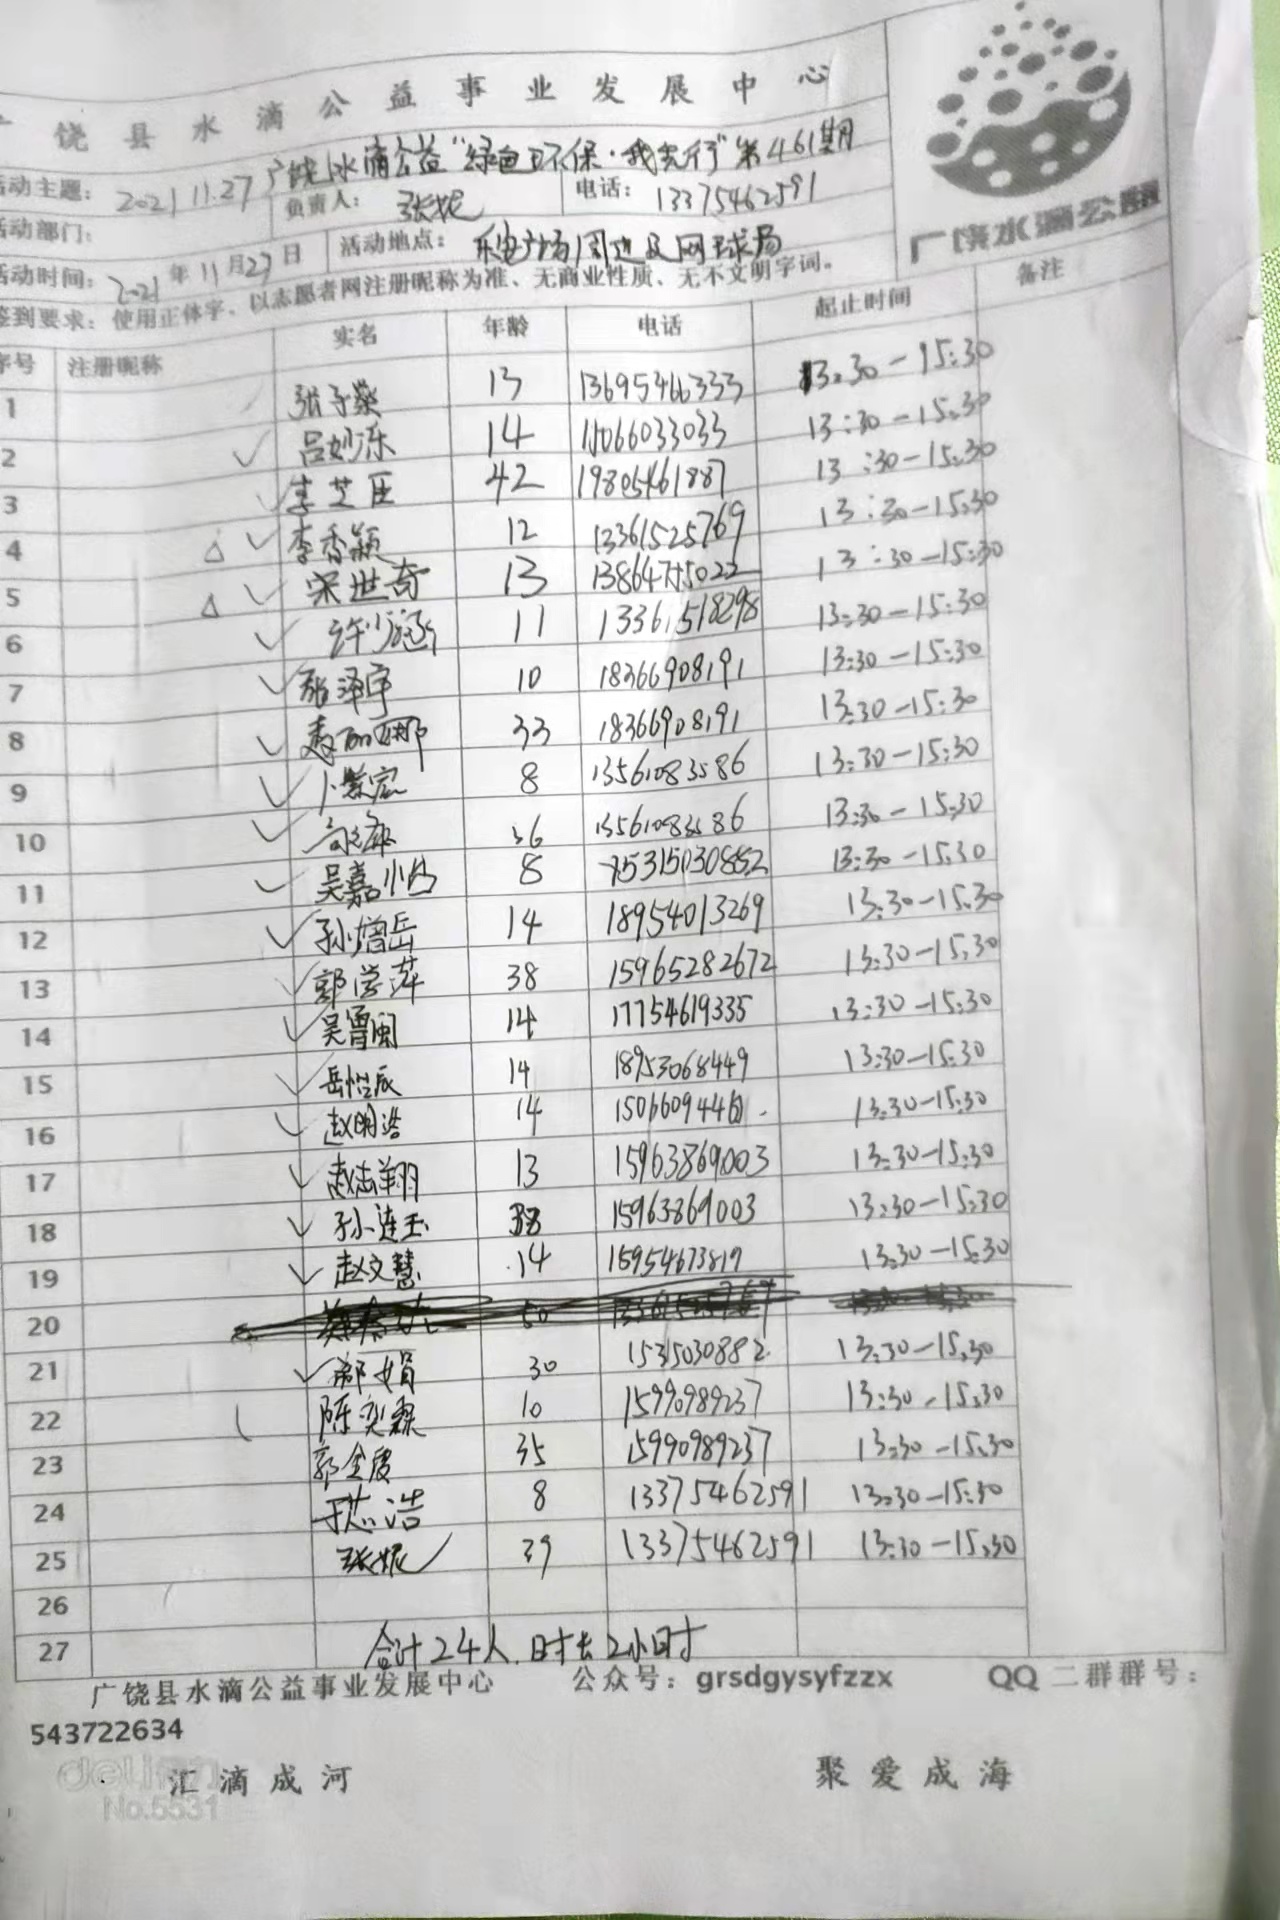 广饶县水滴公益事业发展中心
活动主题: 2021 11.27 广饶水滴公益"绿色环保·我先行"第461期
活动部门: 负责人: 张妮 电话: 13375462591
活动时间: 2021年11月27日 活动地点: 乐安广场周边及网球场
签到要求: 使用正体字, 以志愿者网注册昵称为准、无商业性质、无不文明字词。
广饶水滴公益
序号 注册昵称 实名 年龄 电话 起止时间 备注
1 张子燊 13 13695466333 13:30-15:30
2 吕妙泺 14 15066033033 13:30-15:30
3 李芝臣 42 19805461887 13:30-15:30
4 李香颖 12 13361525769 13:30-15:30
5 宋世奇 13 13864755022 13:30-15:30
6 许少涵 11 13361518298 13:30-15:30
7 张泽宇 10 18366908191 13:30-15:30
8 娜 33 18366908191 13:30-15:30
9 宸 8 13561083586 13:30-15:30
10 36 13561083586 13:30-15:30
11 吴嘉怡 8 15315030882 13:30-15:30
12 孙增岳 14 18954013269 13:30-15:30
13 郭学萍 38 15965282672 13:30-15:30
14 吴曾闽 14 17754619335 13:30-15:30
15 岳恺辰 14 18953068449 13:30-15:30
16 赵明浩 14 13:30-15:30
17 赵志翔 13 15963869003 13:30-15:30
18 孙连玉 38 15963869003 13:30-15:30
19 赵文慧 14 15954673819 13:30-15:30
20 50
21 娟 30 1535030882 13:30-15:30
22 陈奕霖 10 15990989237 13:30-15:30
23 郭金霞 35 15990989237 13:30-15:30
24 浩 8 13375462591 13:30-15:30
25 张妮 39 13375462591 13:30-15:30
26
27 合计24人.时长2小时
广饶县水滴公益事业发展中心 公众号: grsdgysyfzzx QQ二群群号:
543722634
deli得力
No.5531
汇滴成河 聚爱成海